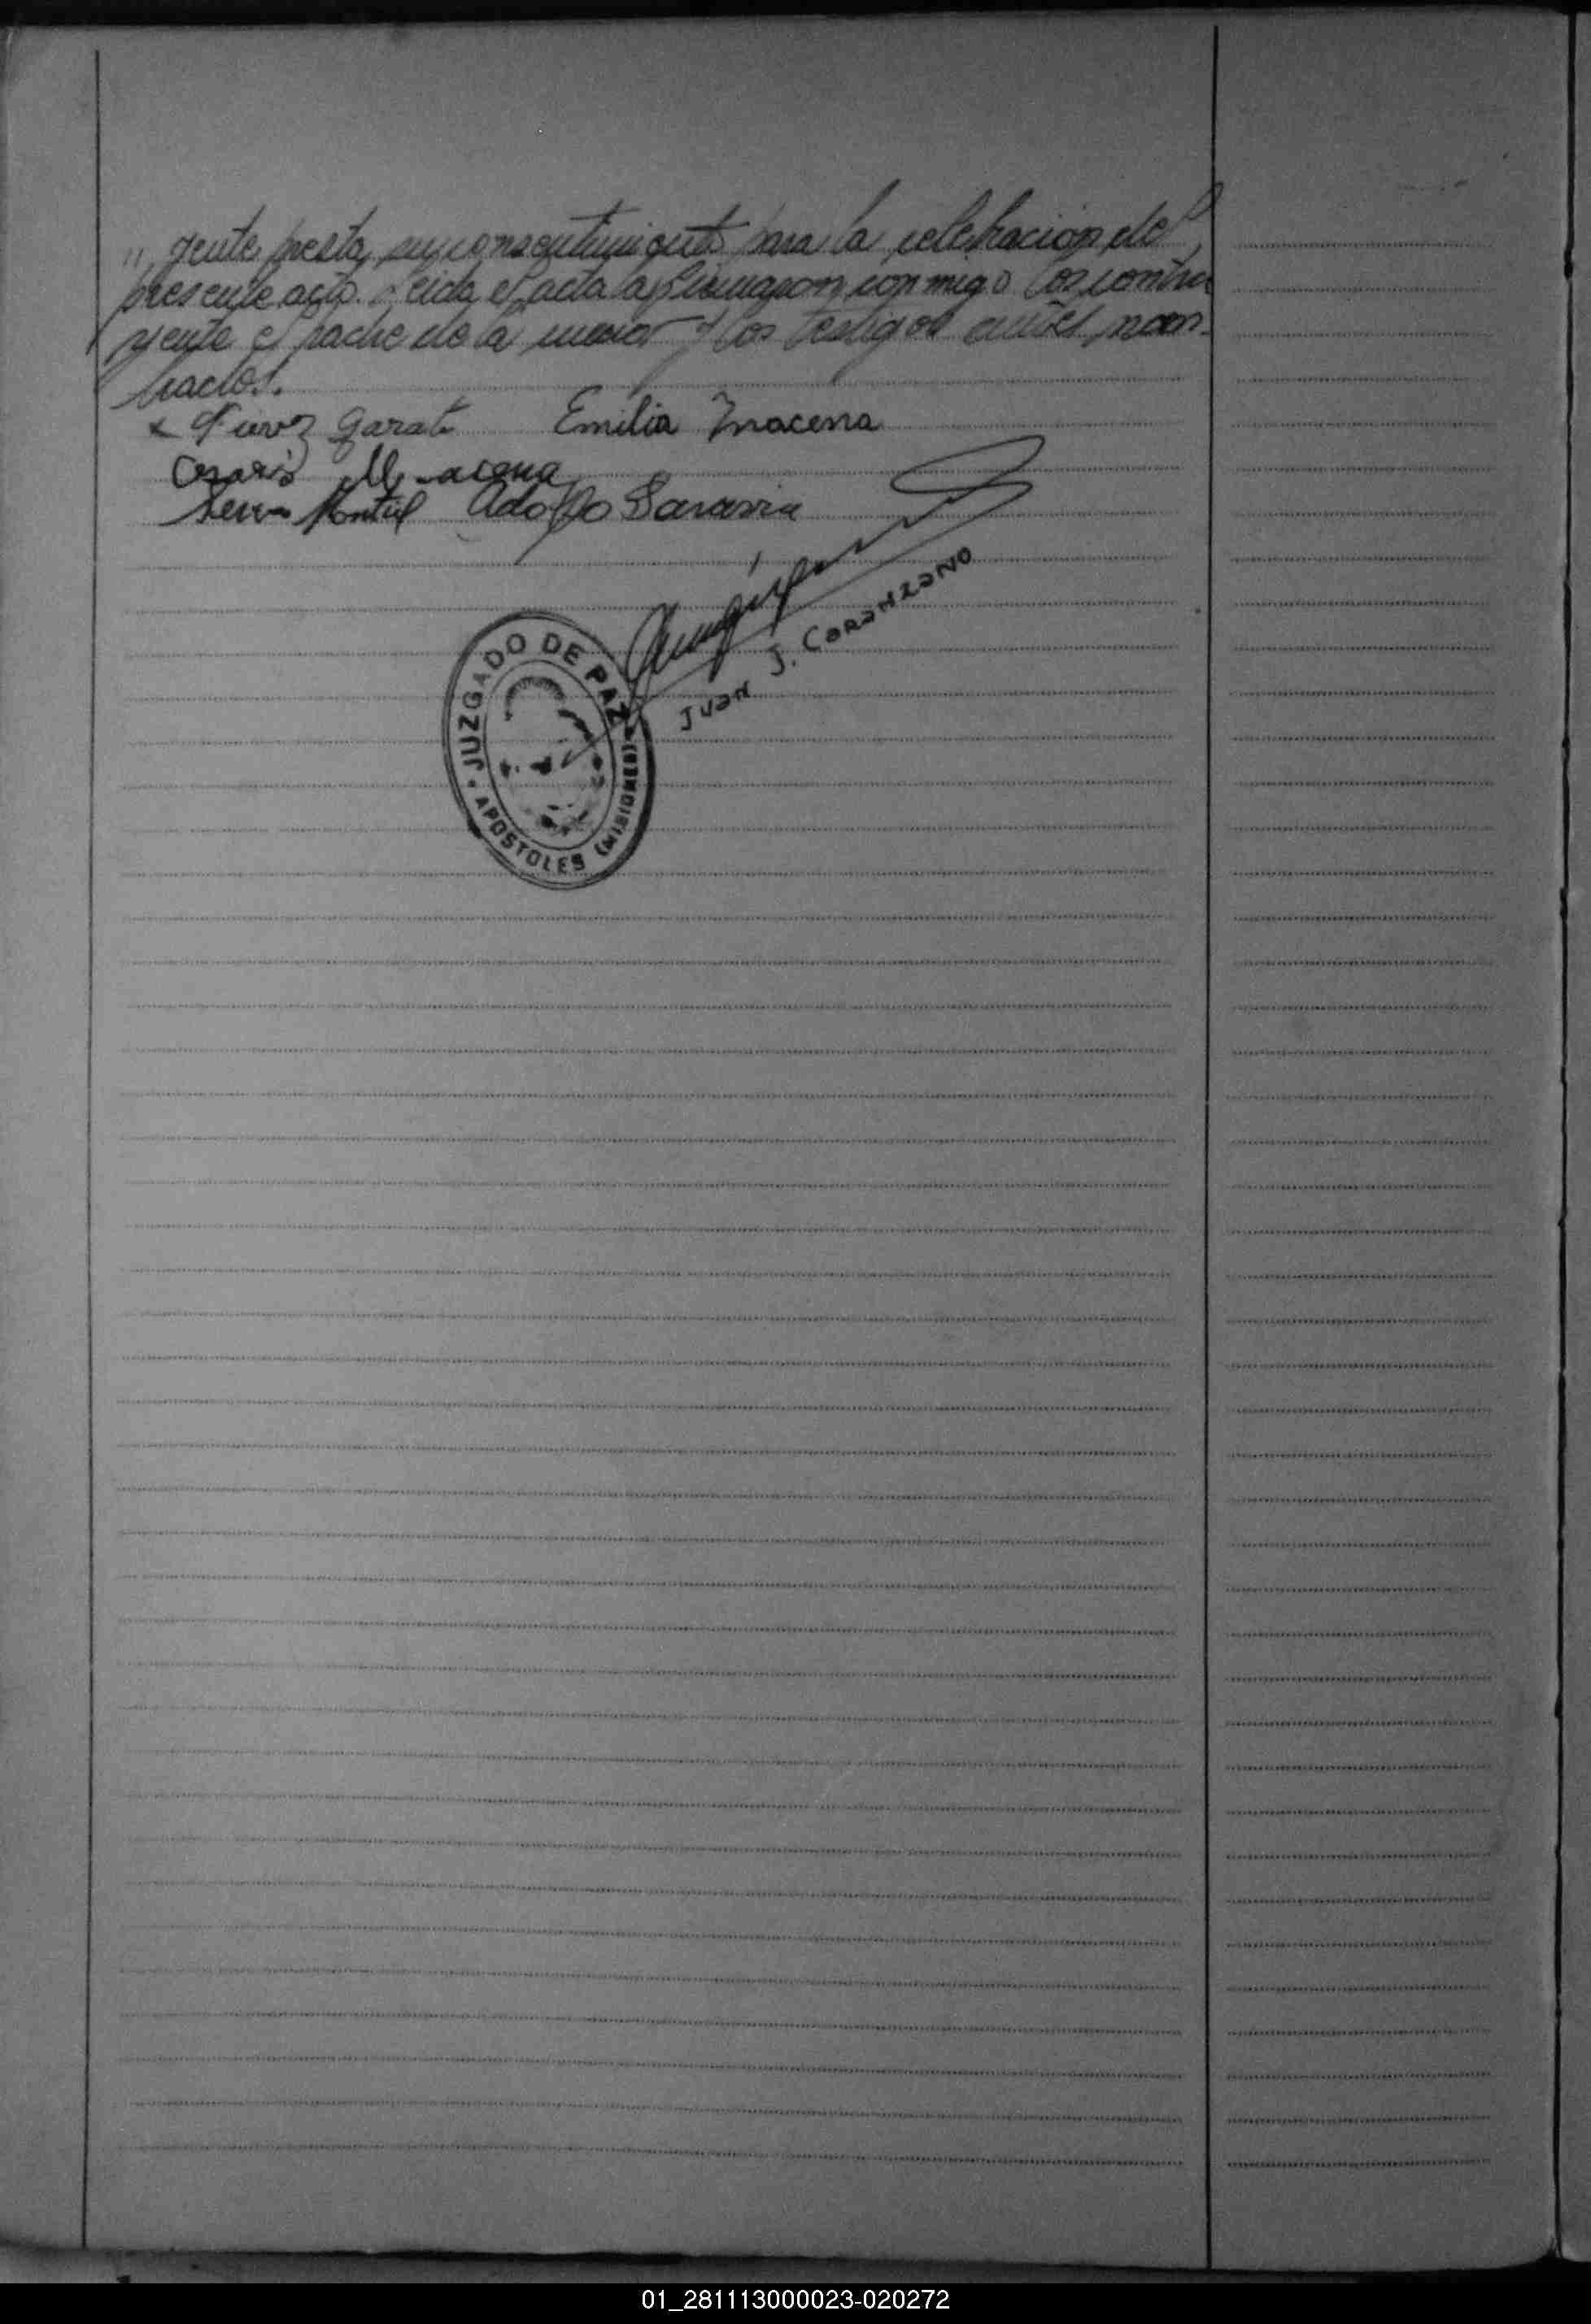 " gente presta su consentimiento para la celebracion del
presente acto. Leida el acta la firmaron conmigo los contra
yente el padre de la menor y los testigos antes nom-
brados.
Garate Emilia Macena
Macena
Montiel Adolfo Saravia
Juan J. Caranzano
JUZGADO DE PAZ
APOSTOLES (MISIONES)
01_281113000023-020272